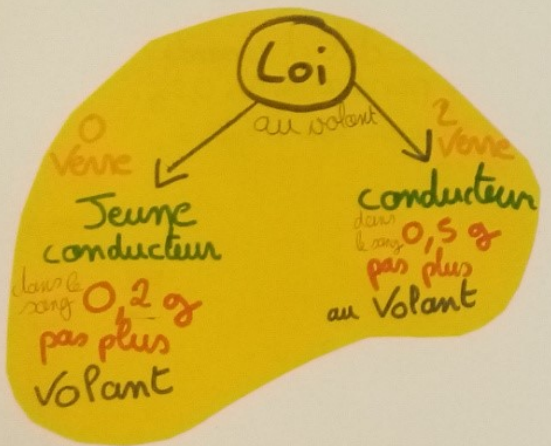 Loi
au volant
0
Verre
Jeune
conducteur
dans le
sang
0,2 g
pas plus
Volant
2
Verre
conducteur
dans
le sang
0,5 g
pas plus
au Volant